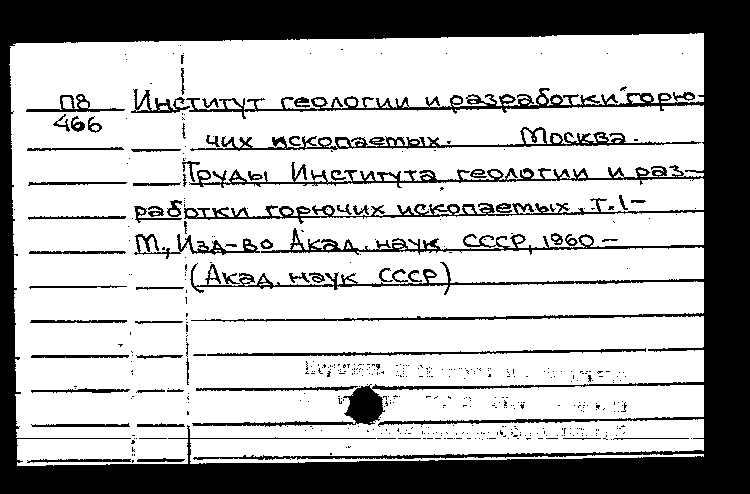 П8 Институт геологии и разработки горю-
466
чих ископаемых. Москва.
Труды Института геологии и раз-
работки горючих ископаемых, т. 1-
М., Изд-во Акад. наук СССР, 1960 -
(Акад. наук СССР)